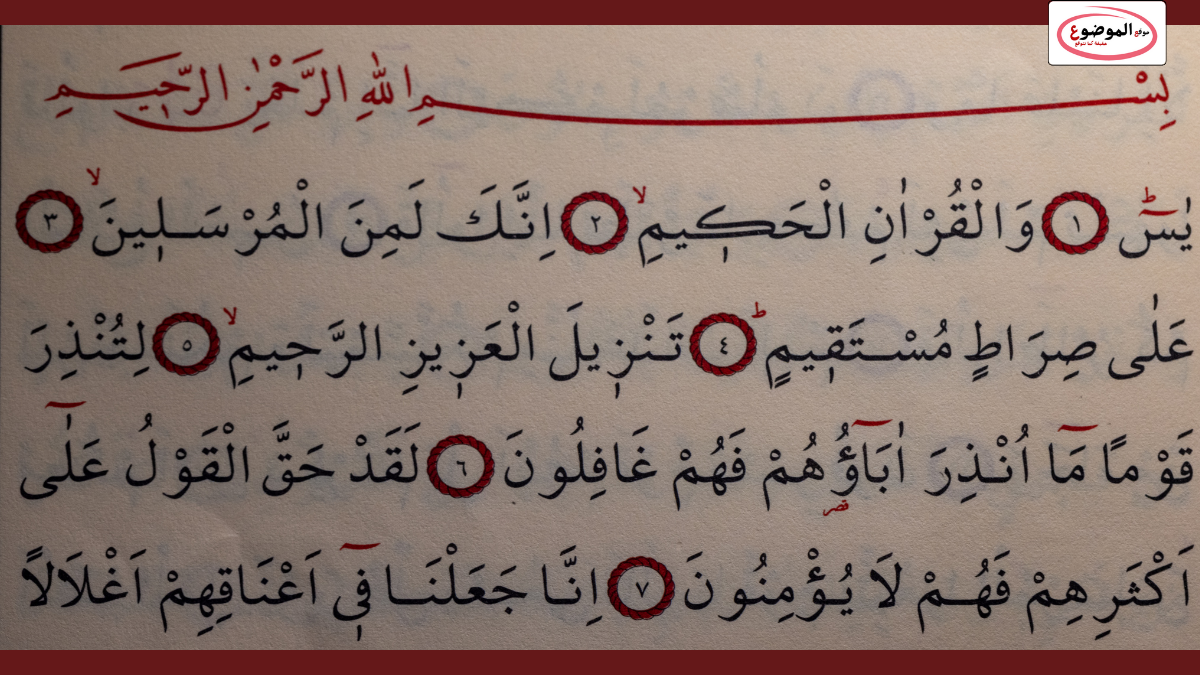 موقع الموضوع
حقيقة كما تتوقع
بِسْمِ اللّٰهِ الرَّحْمٰنِ الرَّحِيمِ
يٰسٓ ۚ ﴿١﴾ وَالْقُرْاٰنِ الْحَكِيمِ ۙ ﴿٢﴾ اِنَّكَ لَمِنَ الْمُرْسَلِينَ ۙ ﴿٣﴾
عَلٰى صِرَاطٍ مُسْتَقِيمٍ ؕ ﴿٤﴾ تَنْزِيلَ الْعَزِيزِ الرَّحِيمِ ۙ ﴿٥﴾ لِتُنْذِرَ
قَوْمًا مَٓا اُنْذِرَ اٰبَٓاؤُ۬هُمْ فَهُمْ غَافِلُونَ ﴿٦﴾ لَقَدْ حَقَّ الْقَوْلُ عَلٰٓى
قصر
اَكْثَرِهِمْ فَهُمْ لَا يُؤْمِنُونَ ﴿٧﴾ اِنَّا جَعَلْنَا فِٓي اَعْنَاقِهِمْ اَغْلَالًا